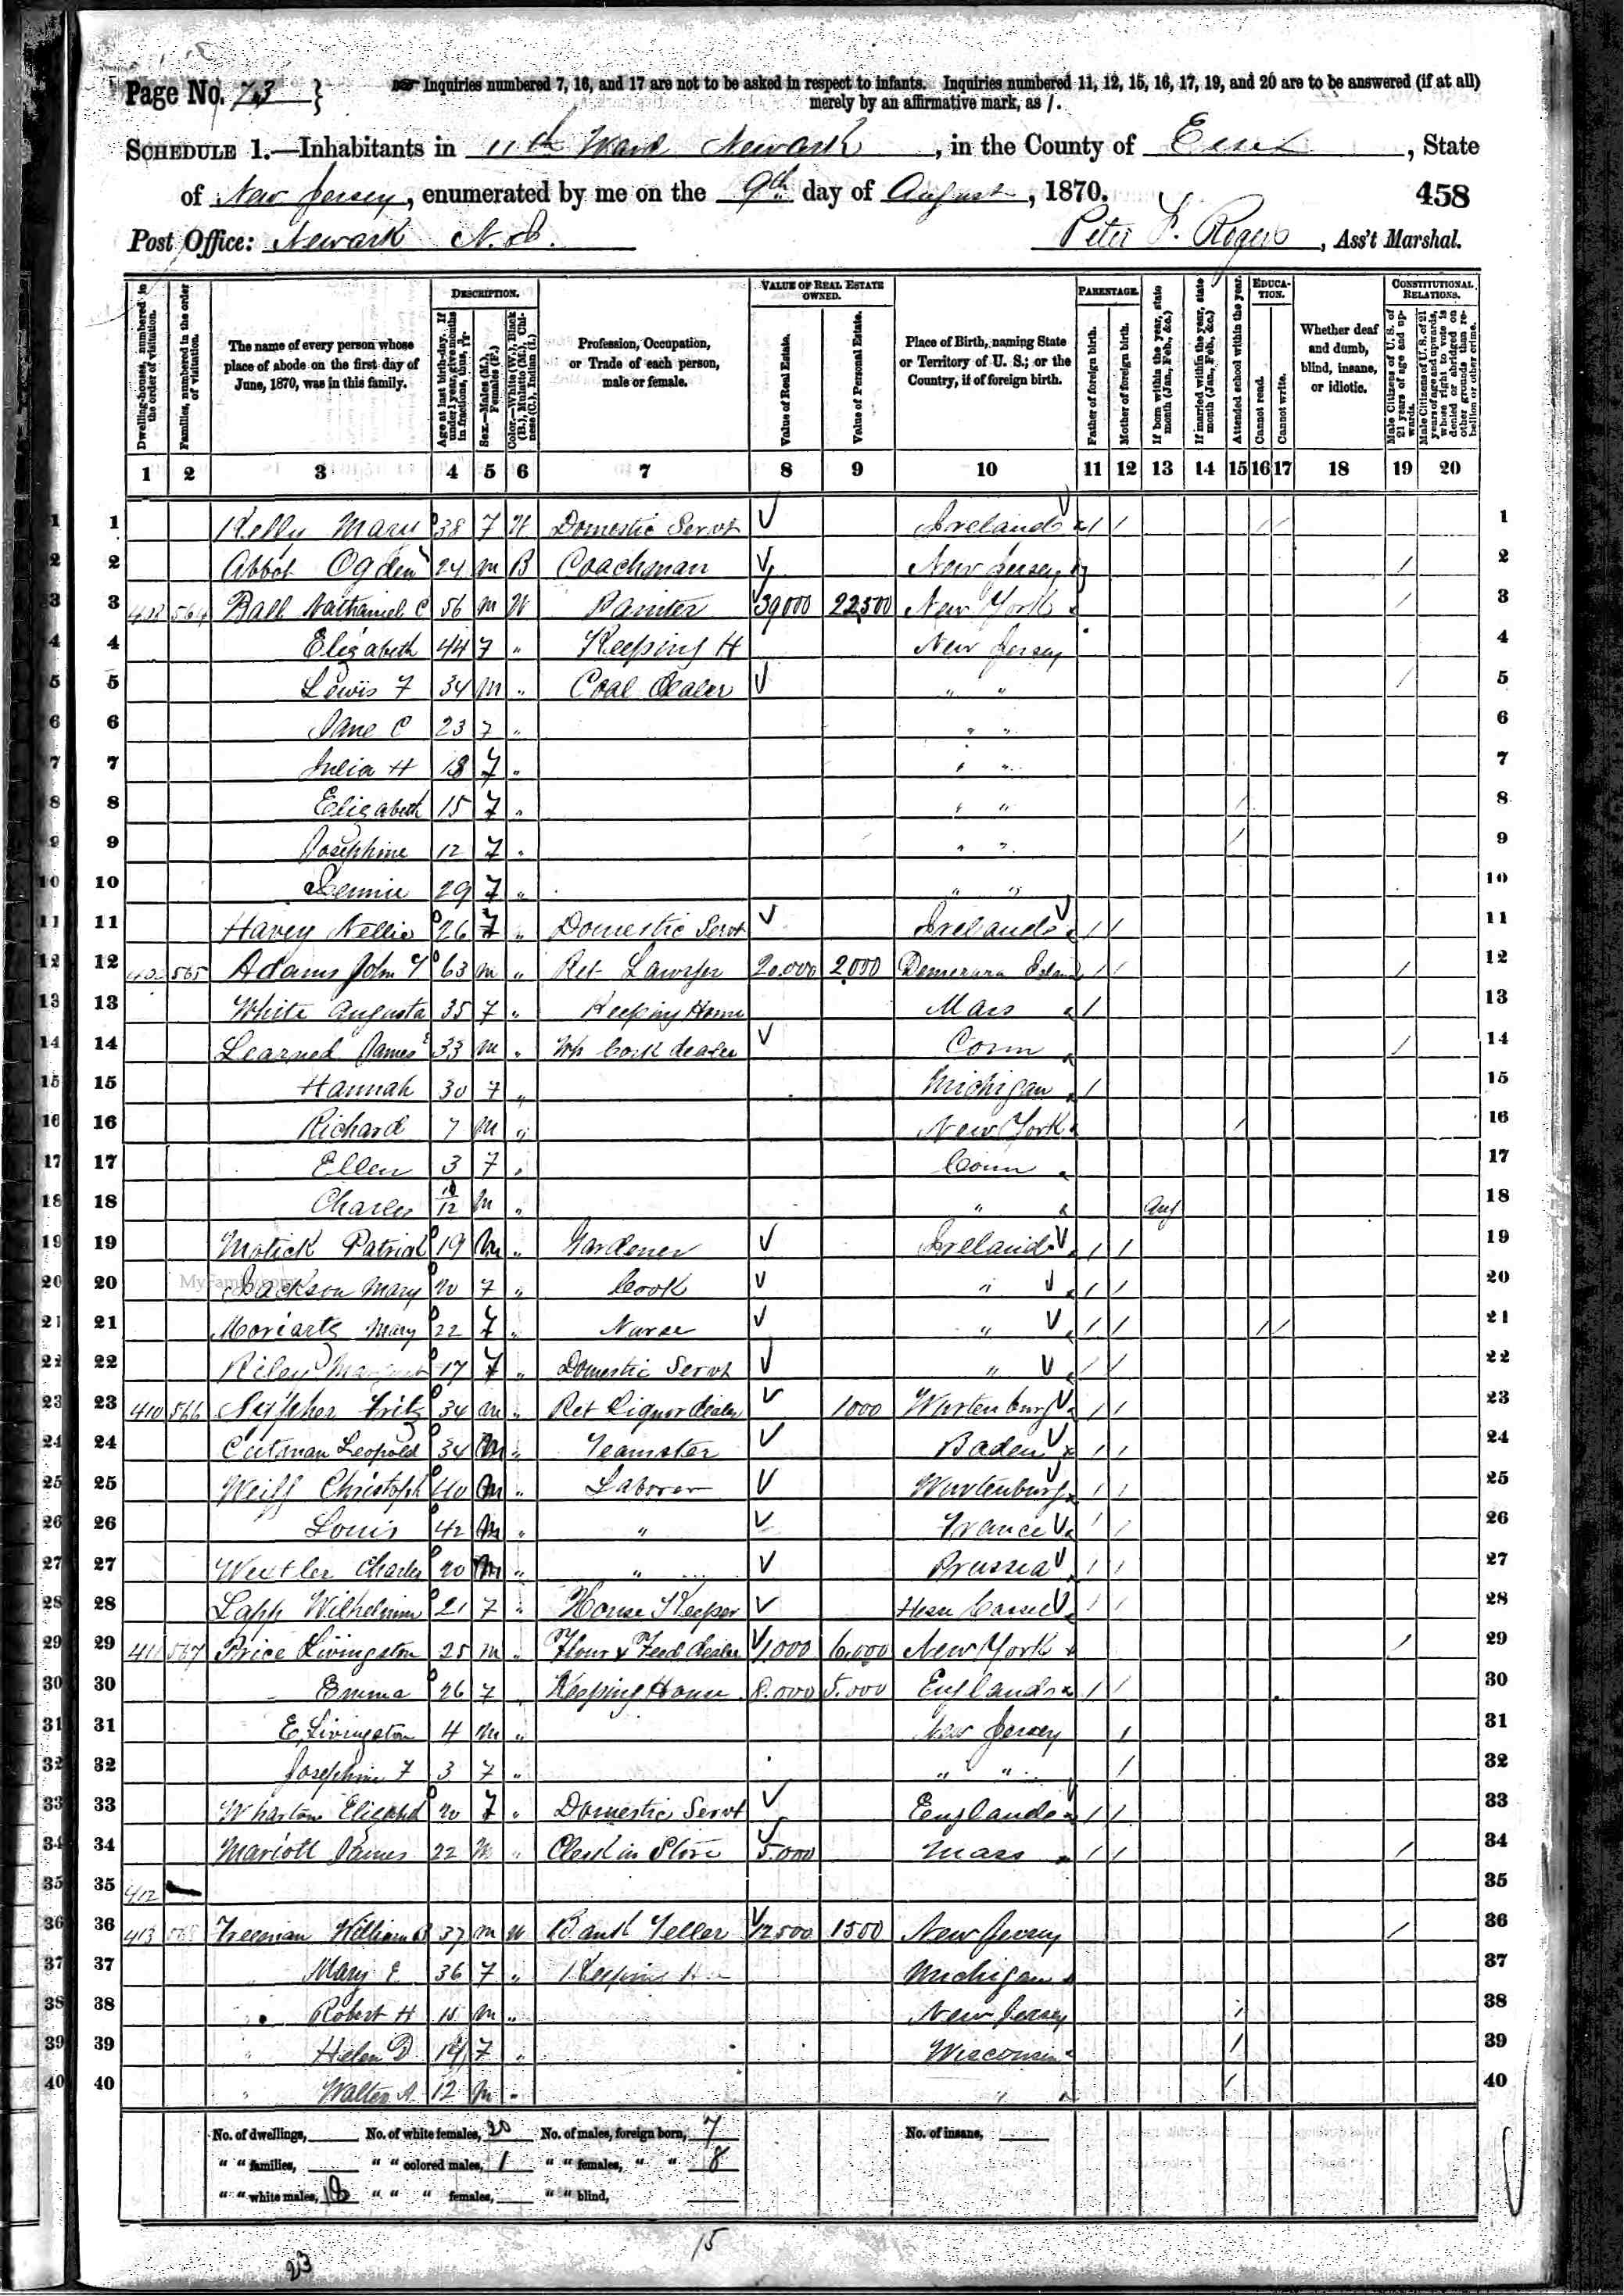 Page No. 73 } ☞ Inquiries numbered 7, 16, and 17 are not to be asked in respect to infants. Inquiries numbered 11, 12, 15, 16, 17, 19, and 20 are to be answered (if at all)
merely by an affirmative mark, as /.
SCHEDULE 1.—Inhabitants in 11th Ward Newark, in the County of Essex, State
of New Jersey, enumerated by me on the 9th day of August, 1870. 458
Post Office: Newark N.J. Peter F. Rogers, Ass't Marshal.
Dwelling-houses, numbered in the order of visitation.
Families, numbered in the order of visitation.
The name of every person whose place of abode on the first day of June, 1870, was in this family.
DESCRIPTION.
Age at last birth-day. If under 1 year, give months in fractions, thus, 3/12.
Sex.—Males (M.), Females (F.)
Color.—White (W.), Black (B.), Mulatto (M.), Chinese (C.), Indian (I.)
Profession, Occupation, or Trade of each person, male or female.
VALUE OF REAL ESTATE OWNED.
Value of Real Estate.
Value of Personal Estate.
Place of Birth, naming State or Territory of U. S.; or the Country, if of foreign birth.
PARENTAGE.
Father of foreign birth.
Mother of foreign birth.
If born within the year, state month (Jan., Feb., &c.)
If married within the year, state month (Jan., Feb., &c.)
EDUCATION.
Attended school within the year.
Cannot read.
Cannot write.
Whether deaf and dumb, blind, insane, or idiotic.
CONSTITUTIONAL RELATIONS.
Male Citizens of U. S. of 21 years of age and upwards.
Male Citizens of U. S. of 21 years of age and upwards, whose right to vote is denied or abridged on other grounds than rebellion or other crime.
1 2 3 4 5 6 7 8 9 10 11 12 13 14 15 16 17 18 19 20
1 1 Kelly Mary 38 F W Domestic Servt Ireland / / / / 1
2 2 Abbot Ogden 24 M B Coachman New Jersey / 2
3 3 564 Ball Nathaniel C 56 M W Painter 39000 22,500 New York / 3
4 4 Elizabeth 44 F " Keeping H New Jersey 4
5 5 Lewis F 34 M " Coal Dealer " " / 5
6 6 Jane C 23 F " " " 6
7 7 Julia H 18 F " " " 7
8 8 Elizabeth 15 F " " " / 8
9 9 Josephine 12 F " " " / 9
10 10 29 F " " " 10
11 11 Havey Nellie 26 F " Domestic Servt Ireland / / 11
12 12 565 Adams John 63 M " Ret Lawyer 20.000 2,000 Demerara Island / / / 12
13 13 White Augusta 35 F " Keeping House Mass / 13
14 14 Learned James E 33 M " Wh Cork dealer Conn / 14
15 15 Hannah 30 F " Michigan / 15
16 16 Richard 7 M " New York / 16
17 17 Ellen 3 F " Conn 17
18 18 Charles 10/12 M " " Aug 18
19 19 Patrick 19 M " Gardener Ireland / / 19
20 20 Jackson Mary 20 F " Cook " / / 20
21 21 Moriarty Mary 22 F " Nurse " / / / / 21
22 22 Riley Margaret 17 F " Domestic Servt " / / 22
23 23 410 566 Fritz 34 M " Ret Liquor dealer 1000 Wurtenburg / / 23
24 24 Leopold 34 M " Teamster Baden / / 24
25 25 Weiss Christoph 40 M " Laborer Wurtenburg / / 25
26 26 Louis 42 M " " France / / 26
27 27 Charles 20 M " " Prussia / / 27
28 28 Lapp Wilhelmine 21 F " House Keeper Hesse Cassel / / 28
29 29 411 567 Price Livingston 25 M " Flour & Feed dealer 1000 6,000 New York / 29
30 30 Emma 26 F " Keeping House 8.000 5.000 England / / 30
31 31 E, Livingston 4 M " New Jersey / 31
32 32 Josephine F 3 F " " " / 32
33 33 Wharton Elizabeth 20 F " Domestic Servt England / / 33
34 34 Mariott James 22 M " Clerk in Store 5.000 Mass / / / 34
35 35 412 35
36 36 413 568 Freeman William B 37 M W Bank Teller 12500 1500 New Jersey / 36
37 37 " Mary E 36 F " Keeping H Michigan 37
38 38 " Robert H 15 M " New Jersey / 38
39 39 " Helen D 14 F " Wisconsin / 39
40 40 " Walter A 12 M " " / 40
MyFamily.com
No. of dwellings, No. of white females, 20 No. of males, foreign born, 7 No. of insane,
" " families, " " colored males, 1 " " females, " " 8
" " white males, 18 " " " females, " " blind,
15
23